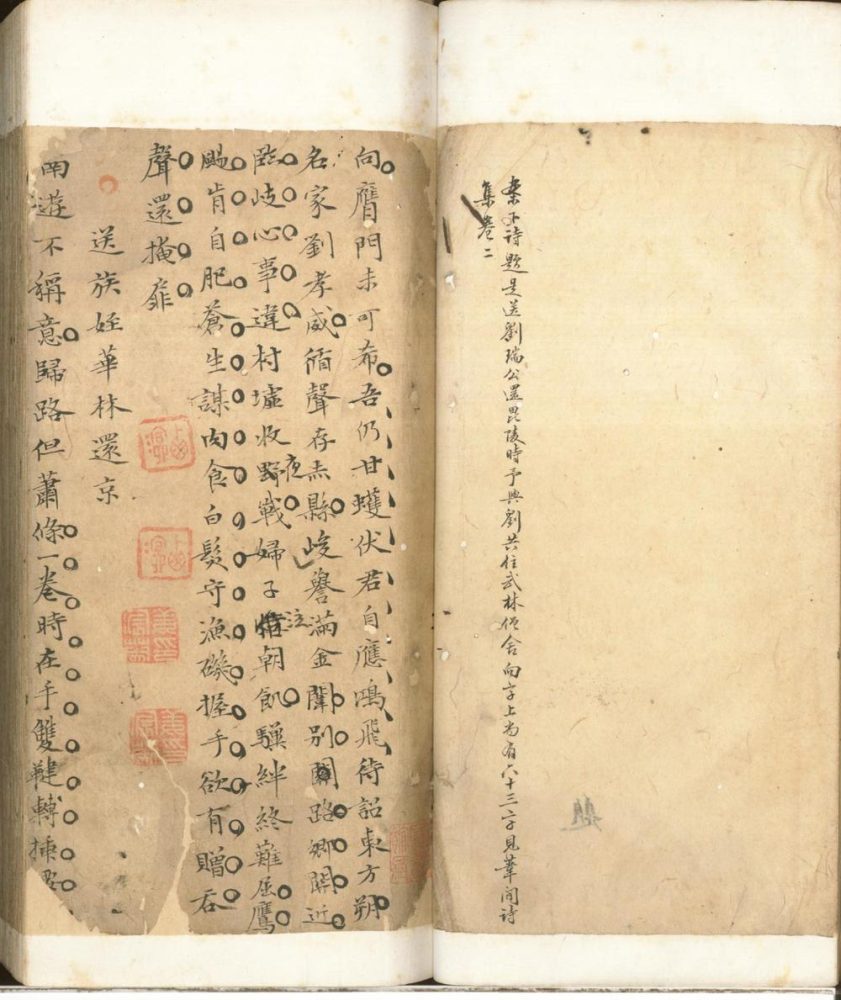 案下詩題是送劉瑞公還毘陵時予與劉共住武林僧舍向字上尚有六十三字見葦間詩
集卷二
向膺門未可希吾仍甘蠖伏君自應鴻飛待詔東方朔
名家劉孝威循聲存赤縣峻譽滿金閨別路鄉關近
臨岐心事違村墟收夜戰婦子泣朝飢驥絆終難屈鷹
颺肯自肥蒼生謀肉食白髮守漁磯握手欲有贈吞
聲還掩扉
送族姪華林還京
南遊不稱意歸路但蕭條一卷時在手雙鞬轉插